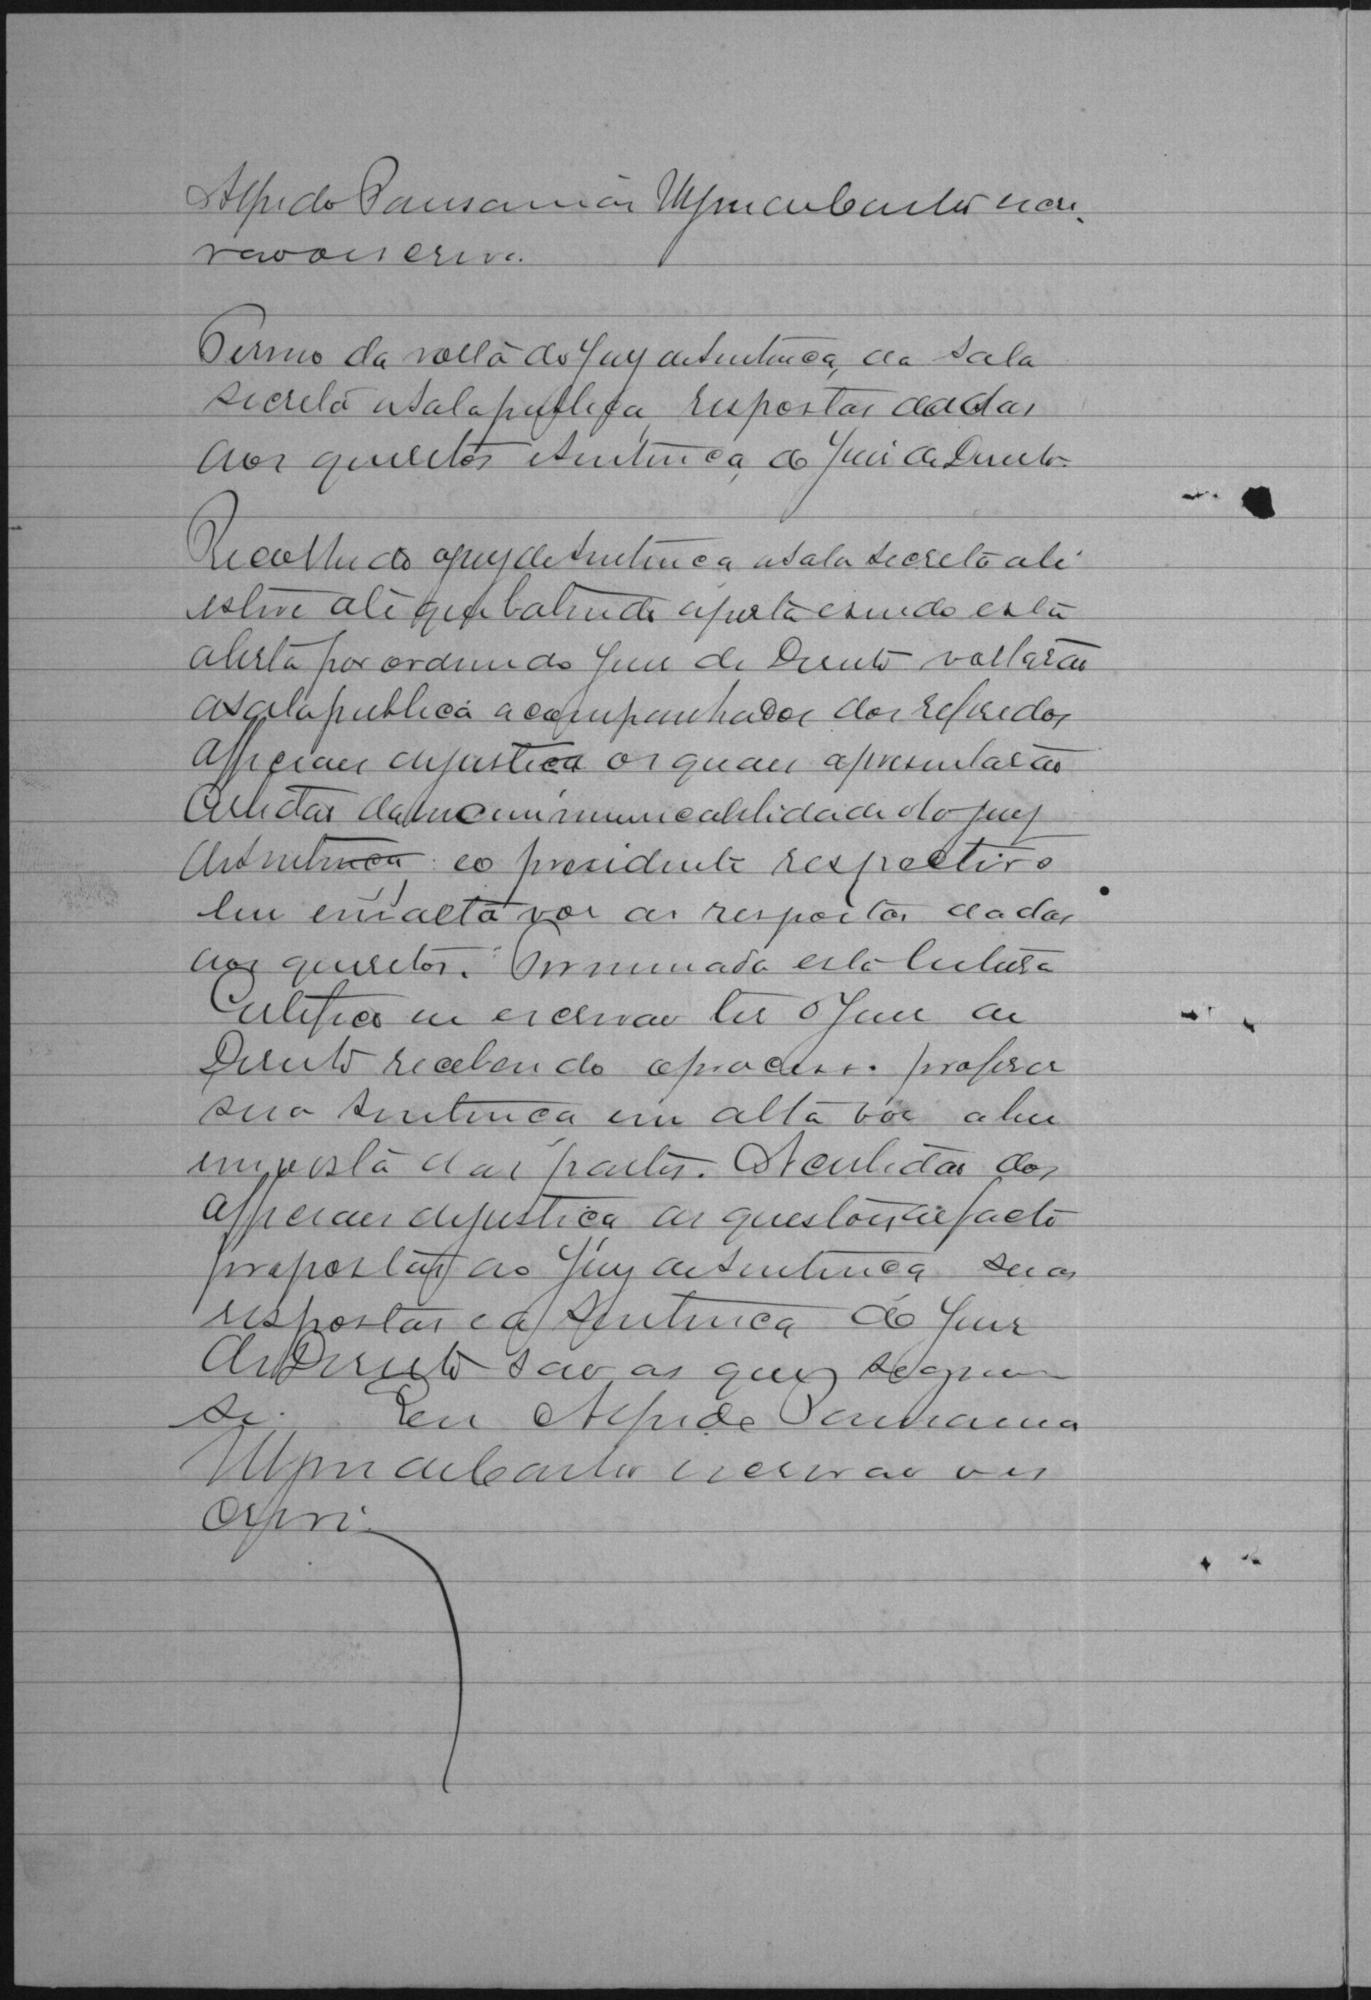 Alfredo Pausanias de Castro escri-
vao o escrevi.
Termo da volta do Jury de Sentença, da sala
secreta a sala publica, respostas dadas
aos quesitos e sentença do Juiz de Direito.
Recolhido o jury de sentença a sala secreta ali
esteve até que batendo a porta e sendo esta
aberta por ordem do Juiz de Direito voltarão
a sala publica acompanhados dos referidos
officiaes de justiça os quaes apresentarão
Certidão da incommunicabilidade do jury
de sentença e o presidente respectivo
leu em alta voz as respostas dadas
aos quesitos. Terminada esta leitura
Certifico eu escrivao ter o Juiz de
Direito recebendo o processo proferir
sua sentença em alta voz a leu
em vista das partes. A certidão dos
officiaes de justiça as questões de facto
propostas ao Jury de sentença suas
respostas e a sentença do Juiz
de Direito sao as que seguem
se. Eu Alfredo Pausanias
de Castro escrivao o es
crevi.